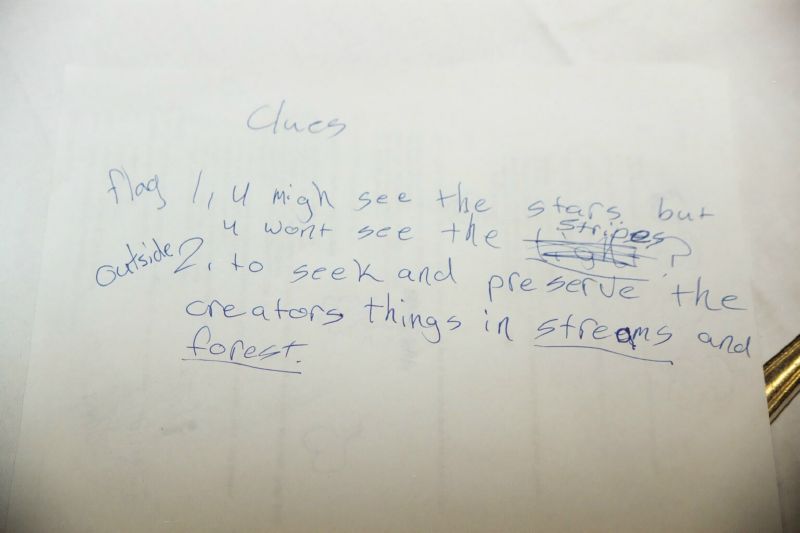 Clues
flag 1, u migh see the stars but
u wont see the stripes?
outside 2, to seek and preserve the
creators things in streams and
forest.